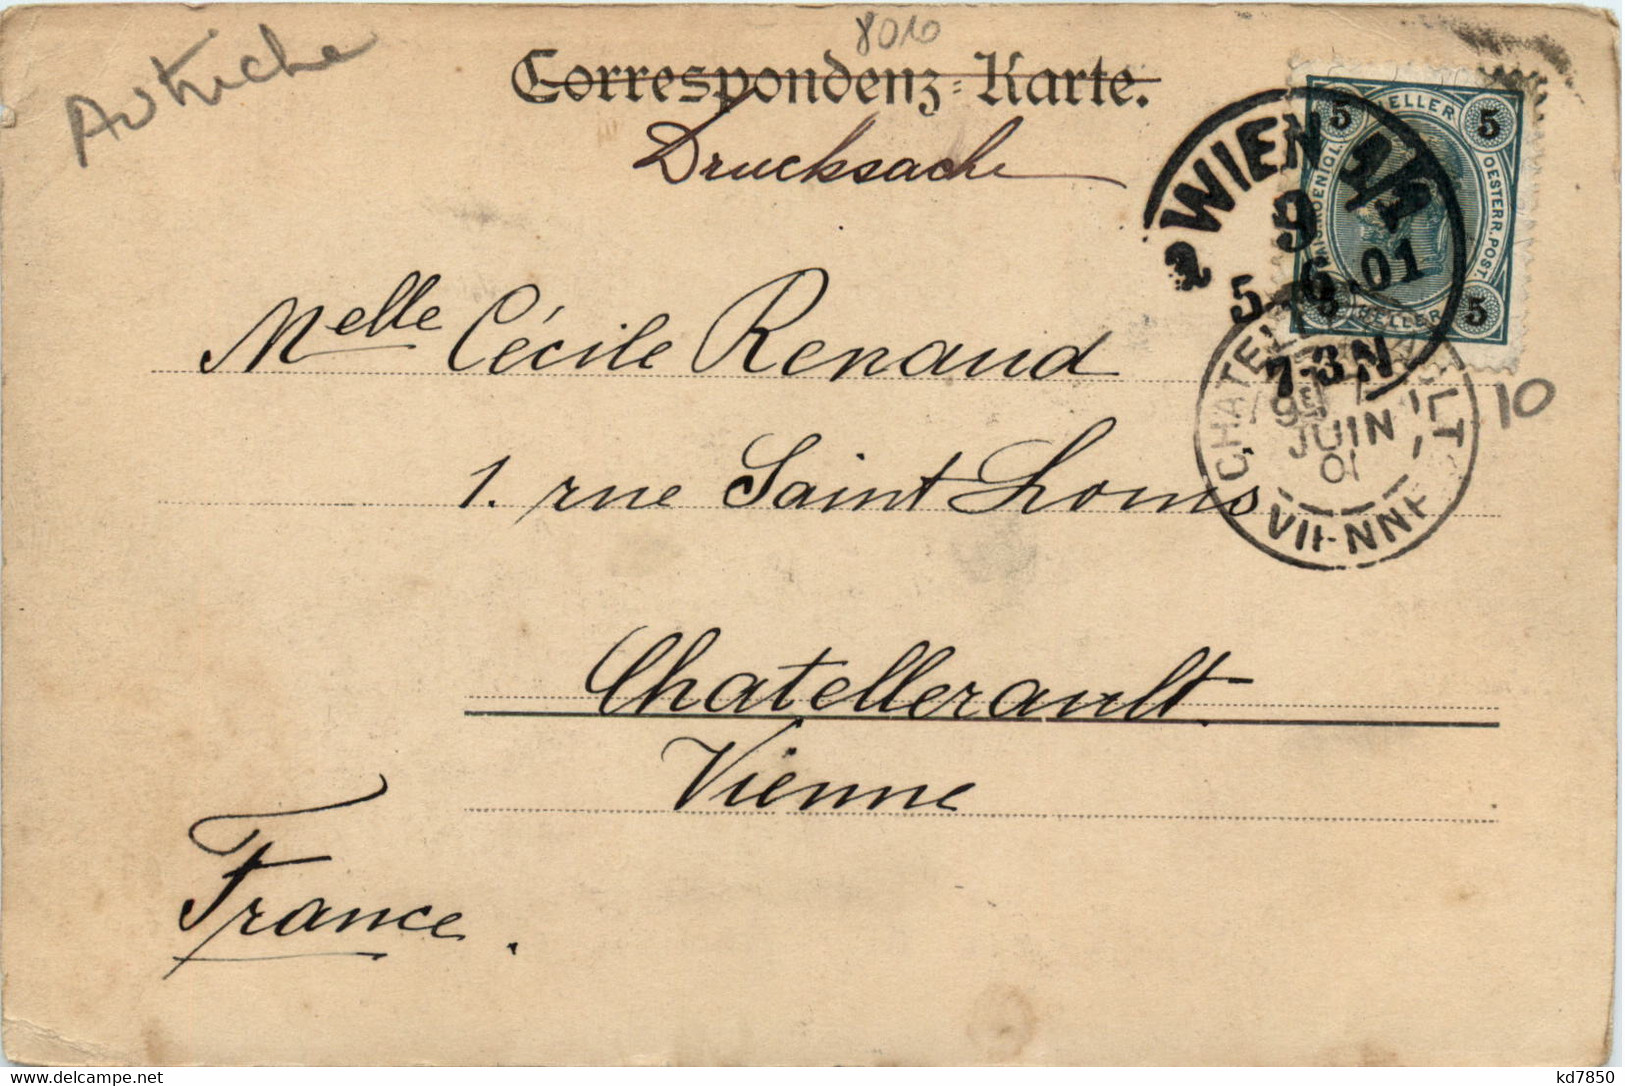 Autriche
8010
Correspondenz-Karte.
Drucksache
5 HELLER 5
KAIS. KOENIGL.
OESTERR. POST.
5 HELLER 5
WIEN 1/1
9
5.6.01
7-3N
2
CHATELLERAULT
JUIN
01
VIENNE
10
Melle Cécile Renaud
1. rue Saint Louis
Chatellerault
Vienne
France.
kd7850